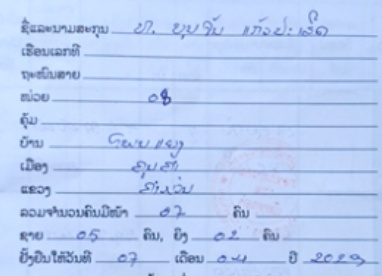 ຊື່ແລະນາມສະກຸນ ທ. ບຸນຈັນ ແກ້ວປະເສີດ
ເຮືອນເລກທີ
ຖະໜົນສາຍ
ໜ່ວຍ 08
ຄຸ້ມ
ບ້ານ
ເມືອງ
ແຂວງ
ລວມຈຳນວນຄົນມີໜ້າ 07 ຄົນ
ຊາຍ 05 ຄົນ, ຍິງ 02 ຄົນ
ຢັ້ງຢືນໃຫ້ວັນທີ 07 ເດືອນ 04 ປີ 2023